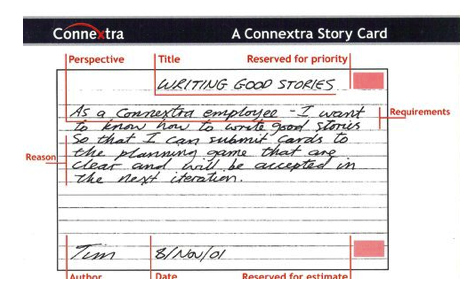 Connextra A Connextra Story Card
Perspective Title Reserved for priority
WRITING GOOD STORIES
As a Connextra employee - I want
Requirements
to know how to write good stories
So that I can submit cards to
Reason
the planning game that are
clear and will be accepted in
the next iteration.
Tim 8/Nov/01
Author Date Reserved for estimate